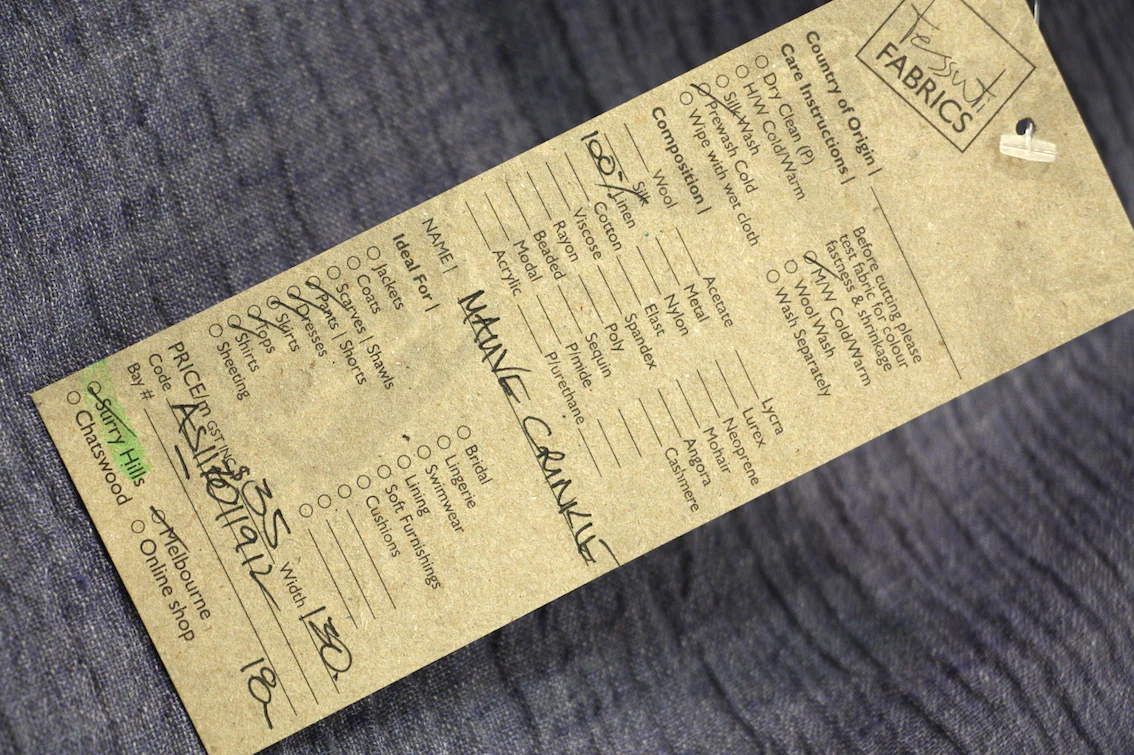 tessuti
FABRICS
Country of Origin |
Care Instructions |
Dry Clean (P)
H/W Cold/Warm
Silk Wash
Prewash Cold
Wipe with wet cloth
Before cutting please
test fabric for colour
fastness & shrinkage
M/W Cold/Warm
Wool Wash
Wash Separately
Composition |
Wool
Silk
100% Linen
Cotton
Viscose
Rayon
Beaded
Modal
Acrylic
Acetate
Metal
Nylon
Elast
Spandex
Poly
Sequin
P/mide
P/urethane
Lycra
Lurex
Neoprene
Mohair
Angora
Cashmere
NAME | MAUVE CRINKLE
Ideal For |
Jackets
Coats
Scarves | Shawls
Pants | Shorts
Dresses
Skirts
Tops
Shirts
Sheeting
Bridal
Lingerie
Swimwear
Lining
Soft Furnishings
Cushions
PRICE/m GST INC $35 Width 130
Code
Bay # 180
Surry Hills Melbourne
Chatswood Online shop